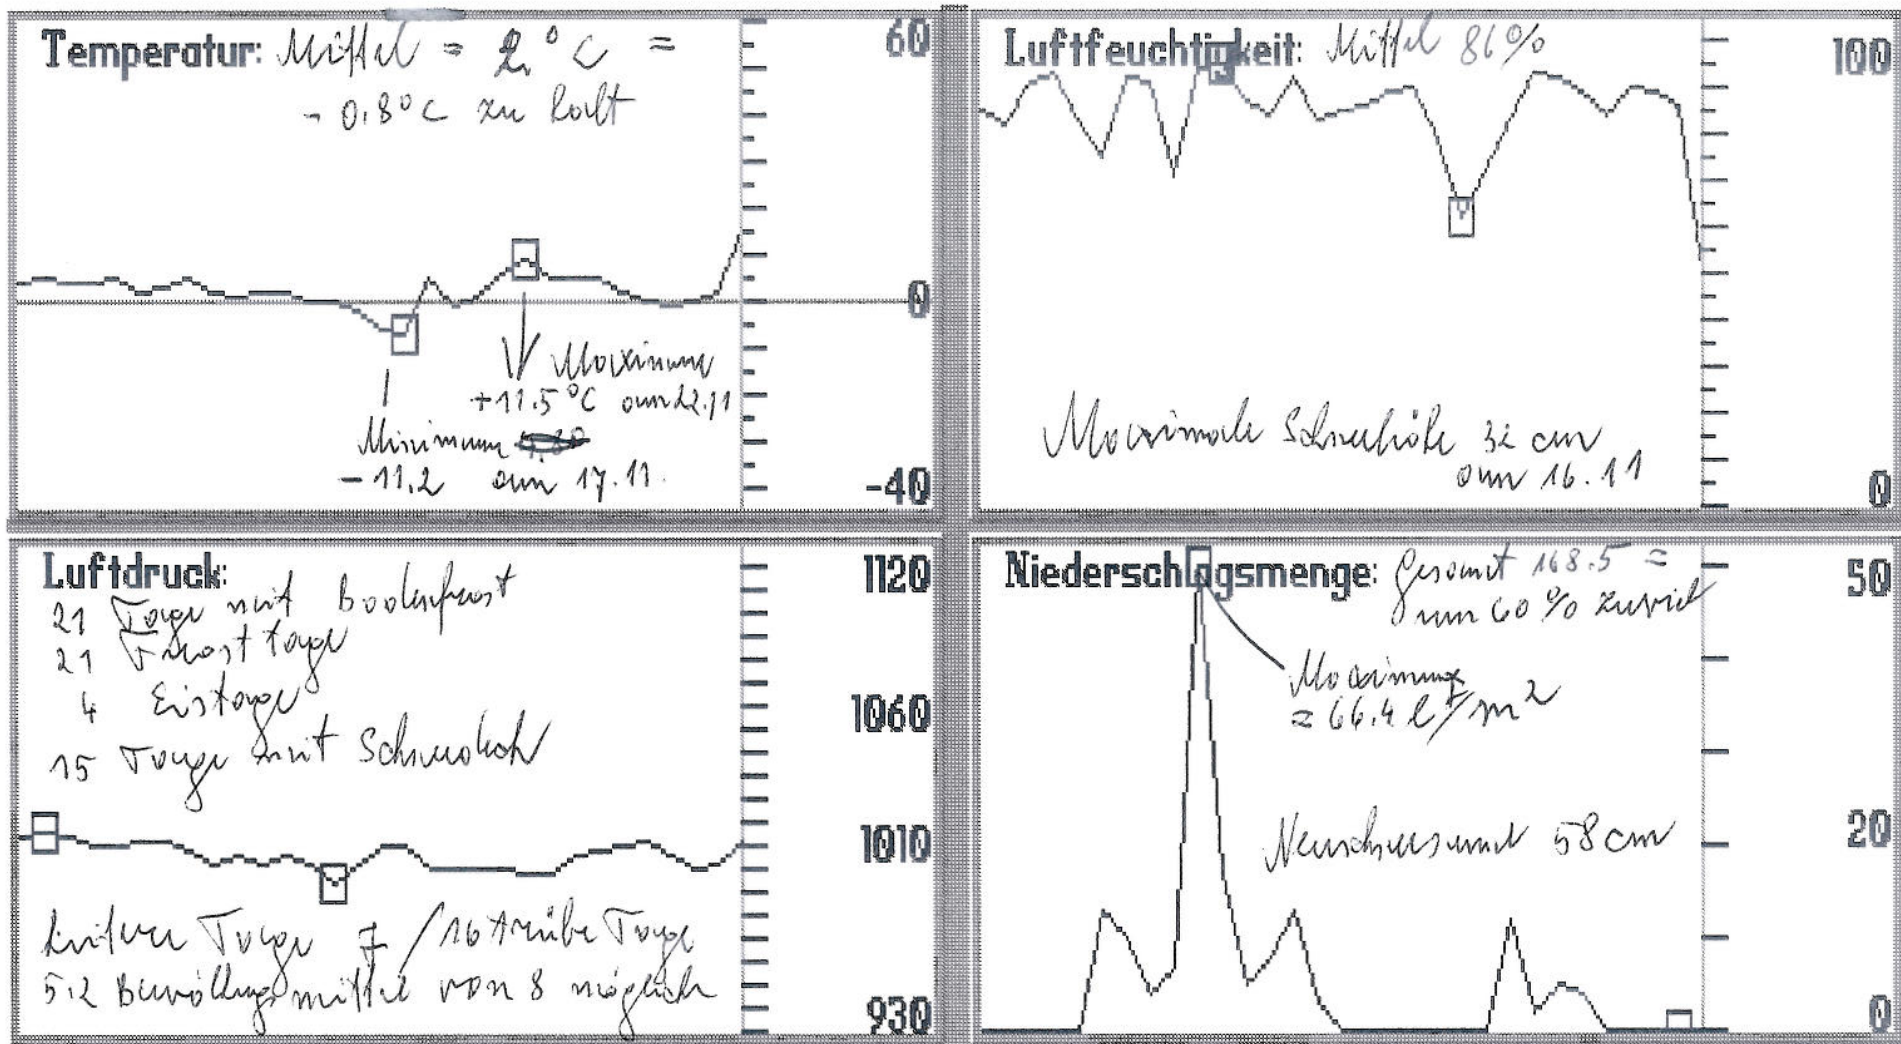 Temperatur: Mittel = 2.°C =
- 0.8°C zu kalt
60
0
Maximum
+11.5°C am 22.11
Minimum
- 11.2 am 17.11.
-40
Luftfeuchtigkeit: Mittel 86%
100
Maximale Schneehöhe 32 cm
am 16.11
0
Luftdruck:
21 Tage mit Bodenfrost
21 Frosttage
4 Eistage
15 Tage mit Schneedeck
1120
1060
1010
heitere Tage 7 / 16 trübe Tage
5.2 Bewölkungsmittel von 8 möglich
930
Niederschlagsmenge: Gesamt 168.5 =
um 60% zuviel
50
Maximum
= 66.4 l/m²
Neuschneesumme 58 cm
20
0